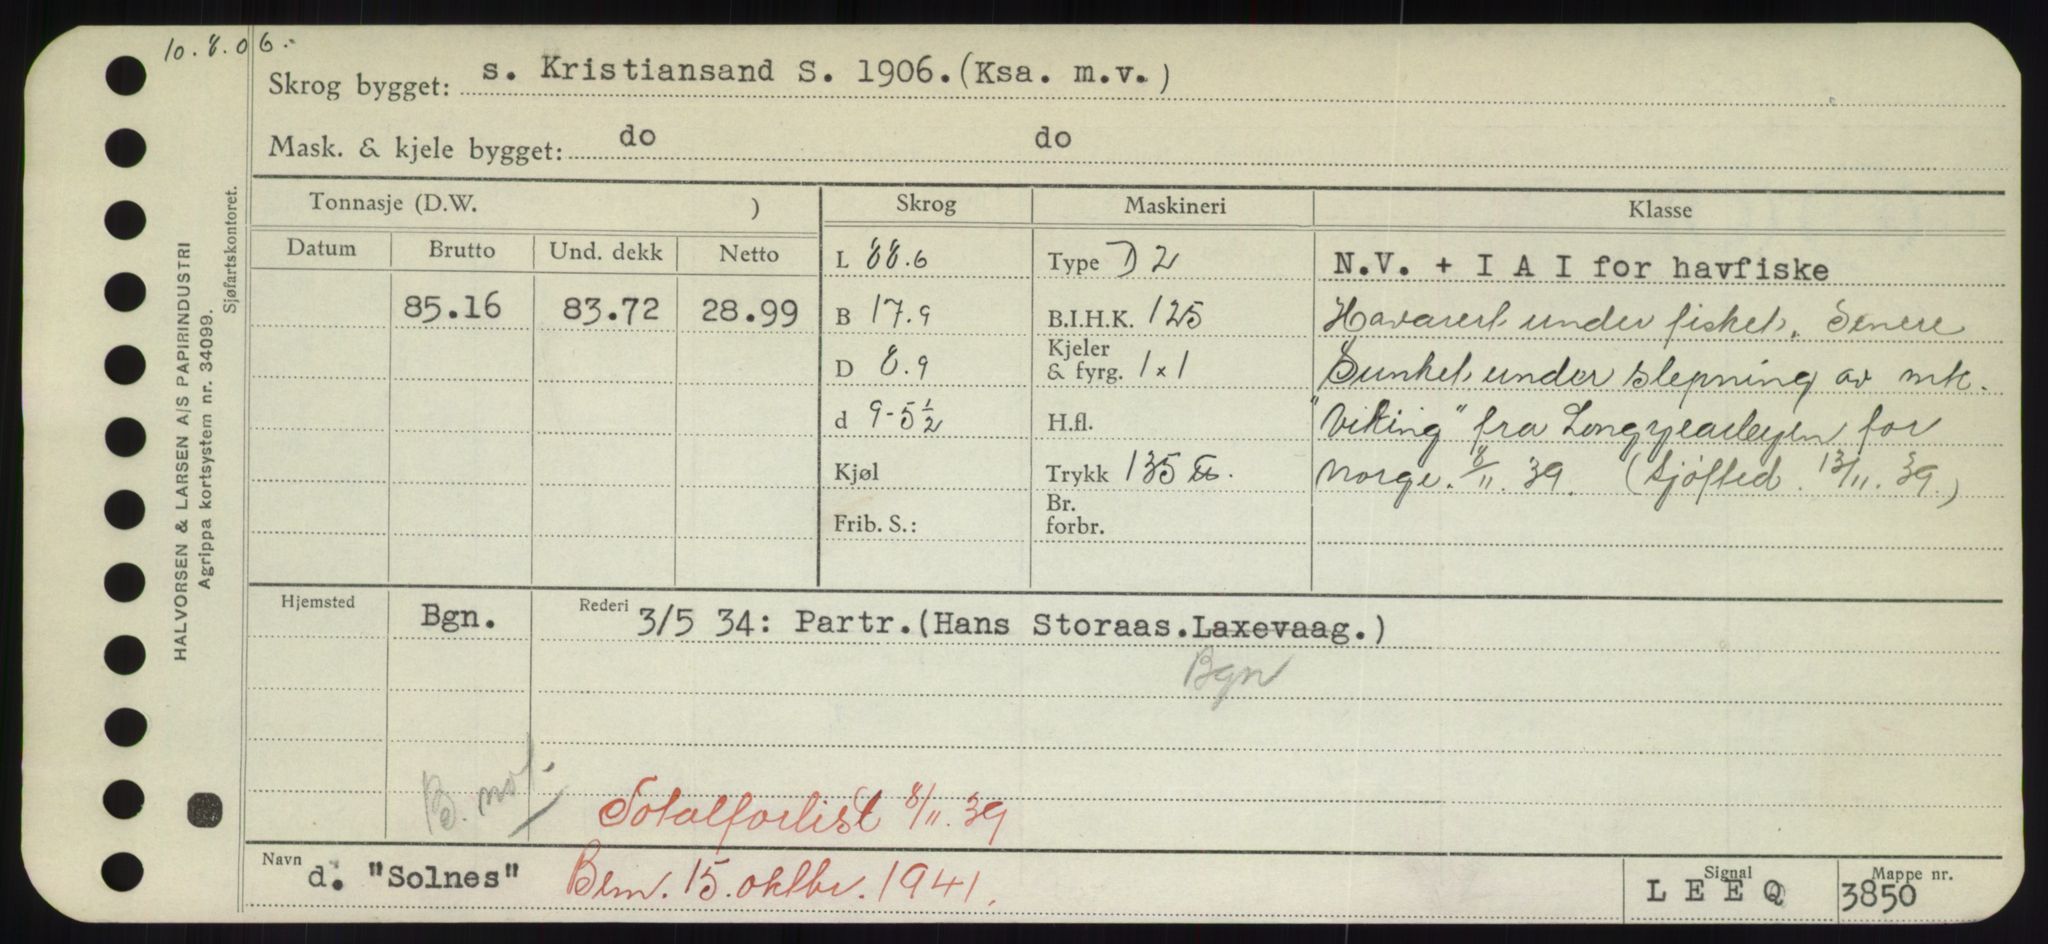 10.8.06.-
Skrog bygget: s. Kristiansand S. 1906.(Ksa. m.v.)
Mask. & kjele bygget: do do
Tonnasje (D.W. ) Skrog Maskineri Klasse
Datum Brutto Und. dekk Netto L 88.6 Type D 2 N.V. + I A I for havfiske
85.16 83.72 28.99 B 17.9 B.I.H.K. 125 Havarert under fisket. Senere
D 8.9 Kjeler & fyrg. 1x1 Sunket under slepning av mk.
d 9-5½ H.fl. "Viking" fra Longyearbyen for
Kjøl Trykk 135 ℔. Norge. 8/11.39. (Sjøfted. 13/11.39.)
Frib. S.: Br. forbr.
Hjemsted Bgn. Rederi 3/5 34: Partr.(Hans Storaas.Laxevaag.)
Bgn
B. not.
Totalforlist 8/11.39
Navn d. "Solnes" Bem. 15. oktbr. 1941. Signal L E E Q Mappe nr. 3850
HALVORSEN & LARSEN A/S PAPIRINDUSTRI
Agrippa kortsystem nr. 34099.
Sjøfartskontoret.